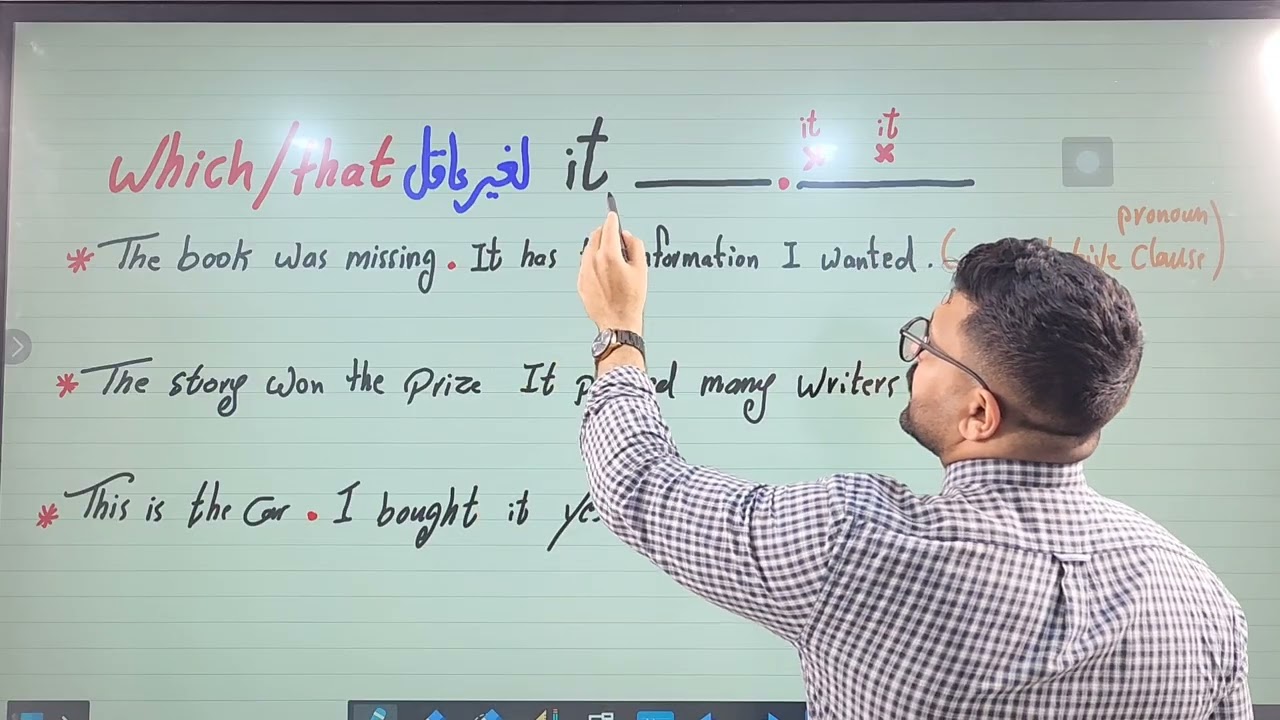 it it
× ×
Which/that لغير عاقل it ______ . ______
pronoun
* The book was missing. It has information I wanted. ( Clause)
* The story won the Prize It many writers
* This is the Car. I bought it